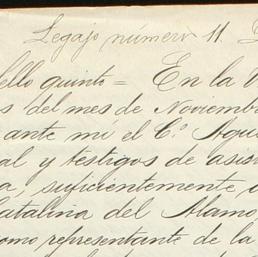 Legajo número 11.
ello quinto = En la
s del mes de Noviembre
ante mi el C.º Agu
al y testigos de asis
a, suficientemente
atalina del Alamo,
omo representante de la